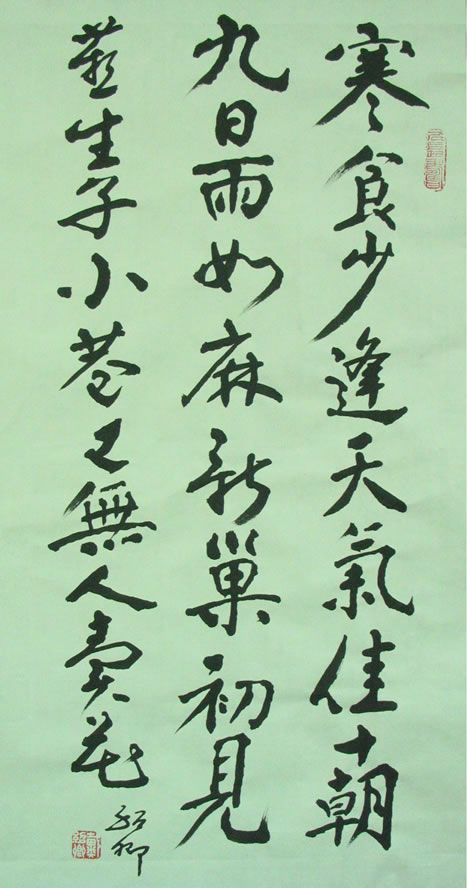 寒食少逢天氣佳十朝
九日雨如麻新巢初見
燕生子小巷已無人賣花